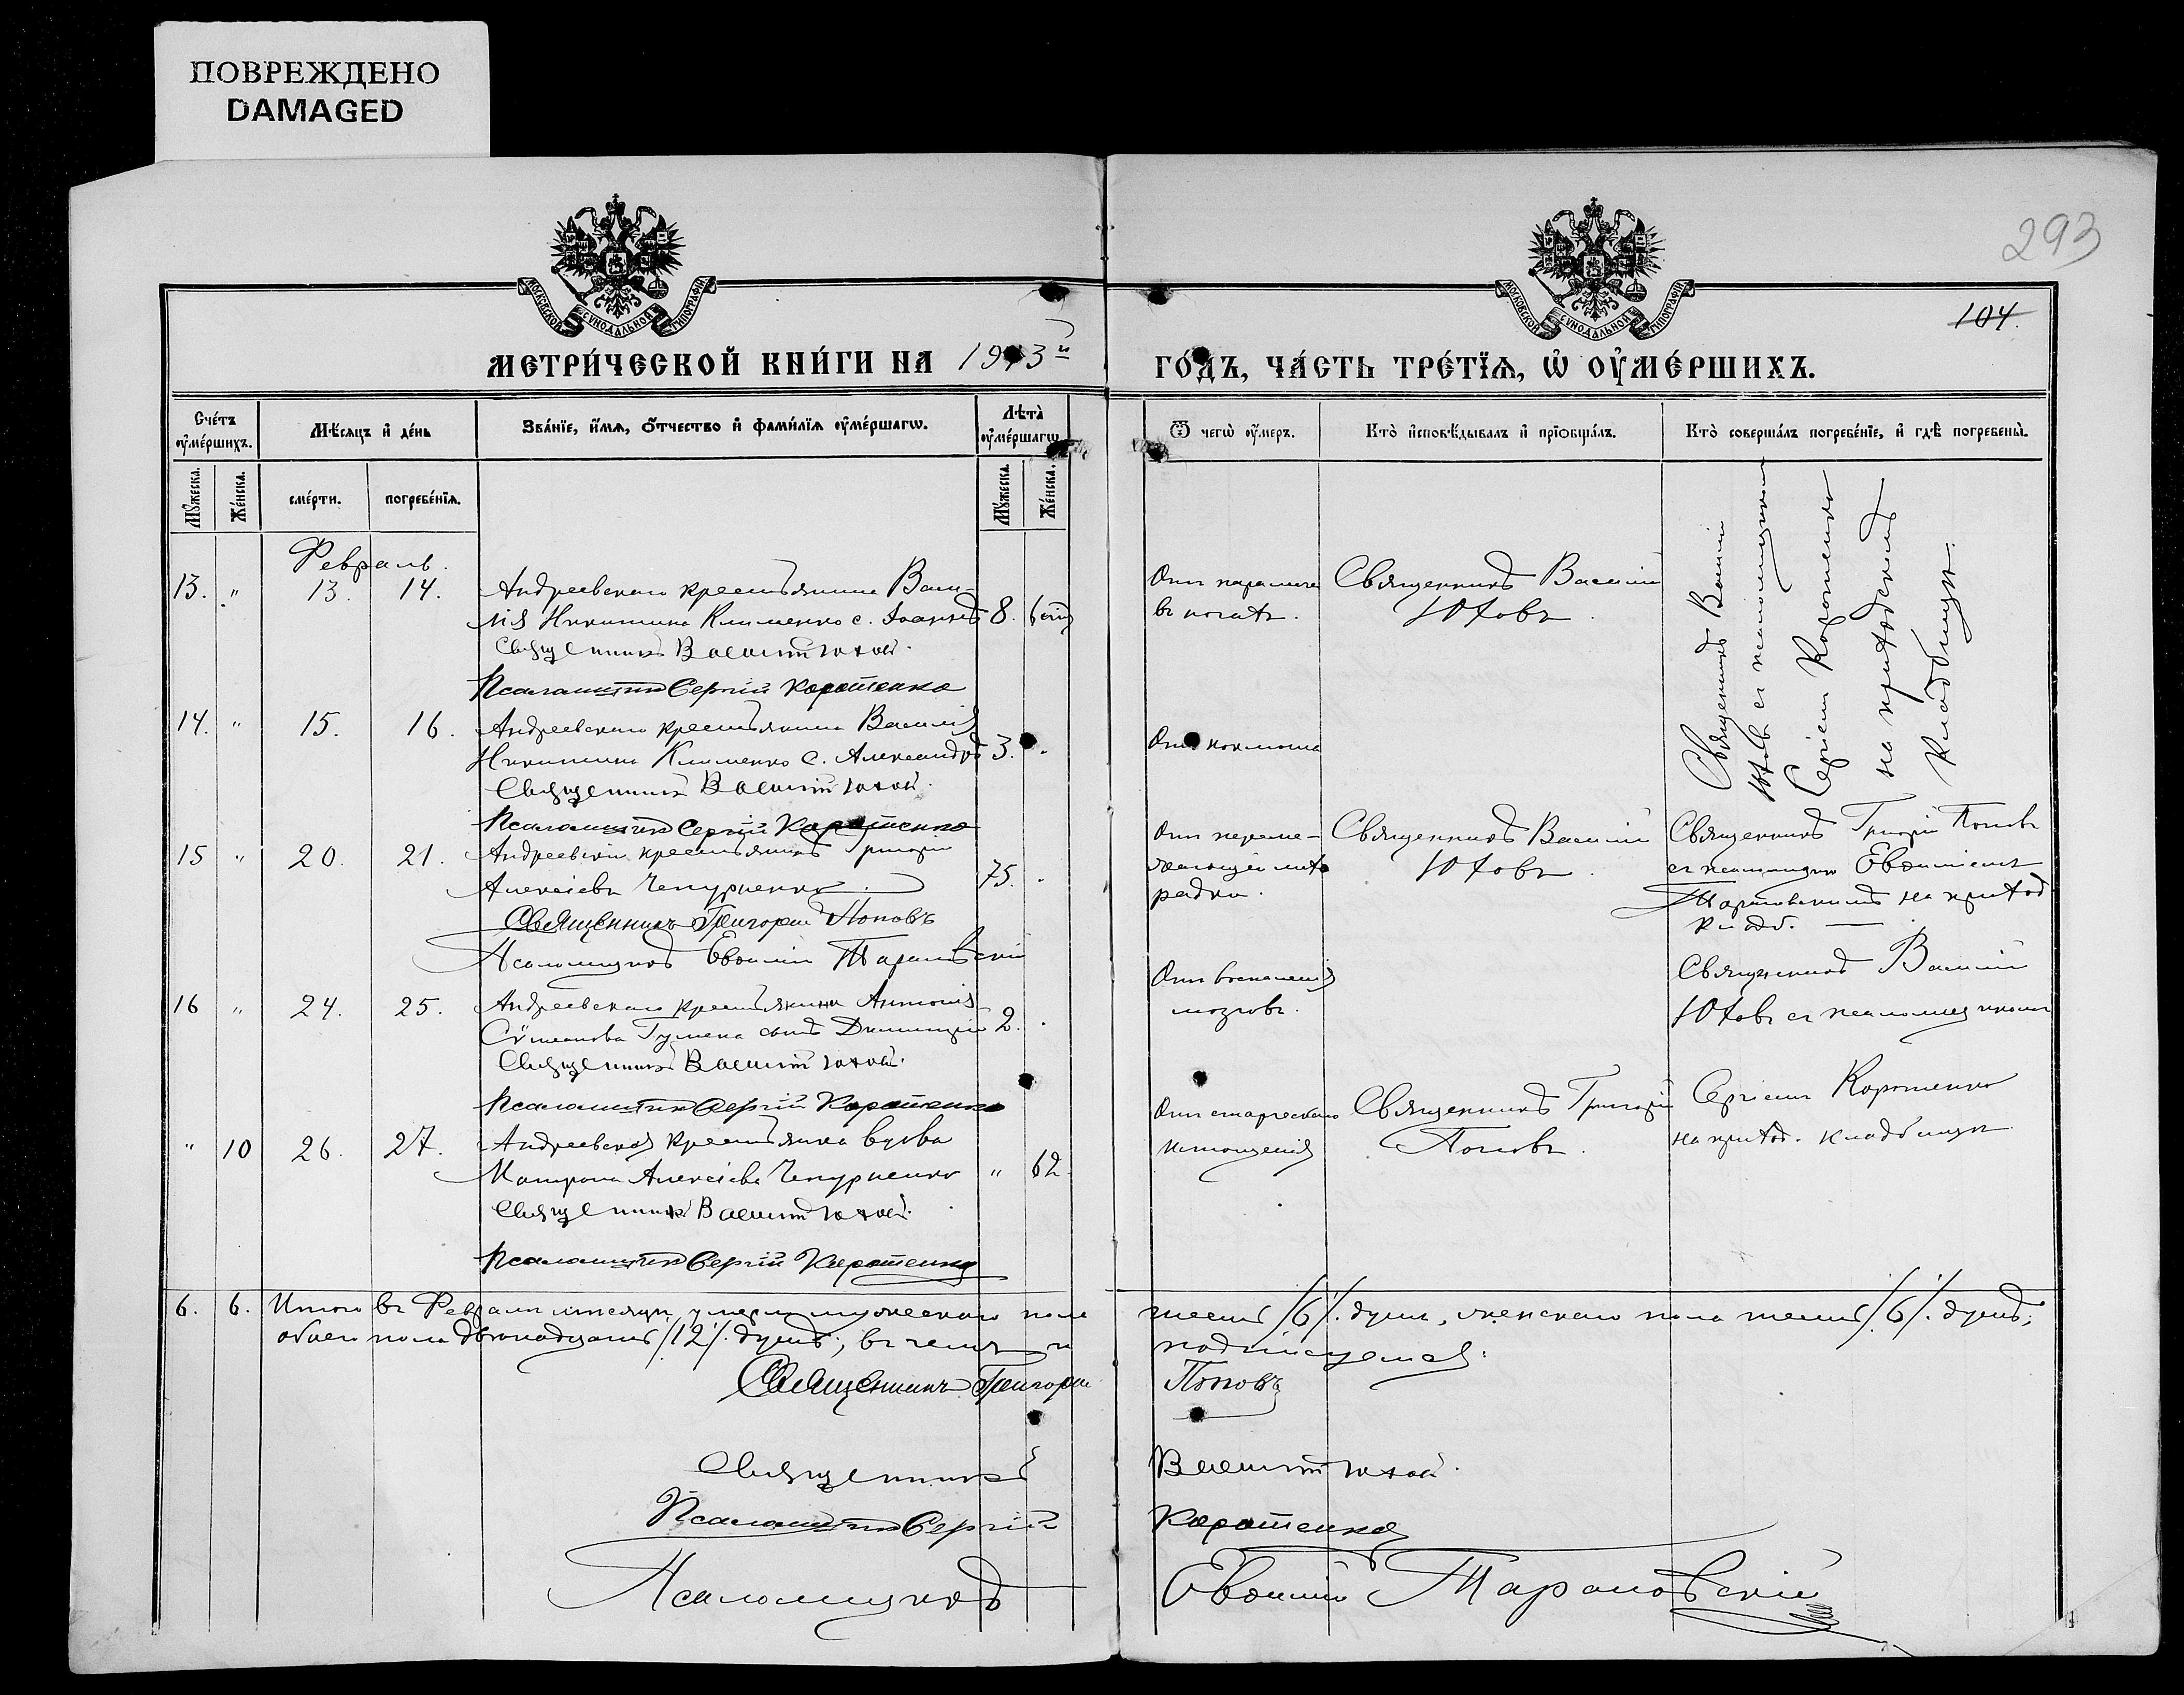 ПОВРЕЖДЕНО
DAMAGED
293
104.
МОСКОВСКОЙ СѴНОДАЛЬНОЙ ТИПОГРАФІИ
МОСКОВСКОЙ СѴНОДАЛЬНОЙ ТИПОГРАФІИ
МЕТРИ́ЧЕСКОЙ КНИ́ГИ НА 1913й ГО́ДЪ, ЧА́СТЬ ТРЕ́ТЇѦ, Ѡ҆ ОУ҆МЕ́РШИХЪ.
Сче́тъ оу҆ме́ршихъ.
Мѣ́сѧцъ и҆ де́нь
Зва́нїе, и҆́мѧ, ѻ҆́тчество и҆ фами́лїѧ оу҆ме́ршагѡ.
Лѣта̀ оу҆ме́ршагѡ
Ѿ чегѡ̀ оу҆́меръ.
Кто̀ и҆сповѣ́дывалъ и҆ прїѡбща́лъ.
Кто̀ соверша́лъ погребе́нїе, и҆ гдѣ̀ погребены̀.
Мꙋ́жеска.
Же́нска.
сме́рти.
погребе́нїѧ.
Мꙋ́жеска.
Же́нска.
Февраль.
13. " 13. 14. Андреевскаго крестьянина Васи-
лія Никитина Клименко с. Іоаннъ 8.
Священникъ Василій Юховъ.
Псаломщикъ Сергій Коротенко
Отъ паралича
въ ногахъ.
Священникъ Василій
Юховъ.
Священникъ Василій
Юховъ съ псаломщикомъ
Сергіемъ Коротенко
на приходскомъ
кладбищѣ.
14. " 15. 16. Андреевскаго крестьянина Василія
Никитина Клименко с. Александръ 3. "
Священникъ Василій Юховъ.
Псаломщикъ Сергій Коротенко
Отъ коклюша
15 " 20. 21. Андреевскій крестьянинъ Григорій
Алексіевъ Чепурненко. 75. "
Священникъ Григорій Поповъ
Псаломщикъ Евѳимій Тарановскій
Отъ переме-
жающей лихо
радки.
Священникъ Василій
Юховъ.
Священникъ Григорій Поповъ
съ псаломщик Евѳиміемъ
Тарановскимъ на приход
кладб.
16 " 24. 25. Андреевскаго крестьянина Антонія
Гумена сынъ Димитрій 2. "
Священникъ Василій Юховъ.
Псаломщикъ Сергій Коротенко
Отъ воспаленія
мозговъ.
Священникъ Василій
Юховъ съ псаломщикомъ
Сергіемъ Коротенко
на приход. кладбищѣ
" 10 26. 27. Андреевская крестьянка вдова
Матрона Алексіева Чепурненко " 62.
Священникъ Василій Юховъ.
Псаломщикъ Сергій Коротенко
Отъ старческаго
истощенія
Священникъ Григорій
Поповъ.
6. 6. Итого въ Февралѣ мѣсяцѣ умерло мужескаго пола шесть /6/. душъ, женскаго пола шесть /6/. душъ;
обоего пола двѣнадцать /12/. душъ; въ чемъ и подписуемся:
Священникъ Григорій Поповъ
Священникъ Василій Юховъ.
Псаломщикъ Сергій Коротенко
Псаломщикъ Евѳимій Тарановскій